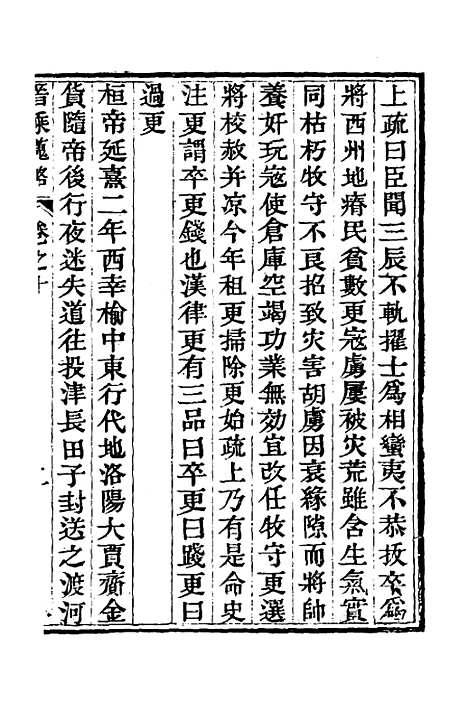 上疏曰臣聞三辰不軌擢士爲相蠻夷不恭拔卒爲
將西州地瘠民貧數更寇虜屢被灾荒雖含生氣實
同枯朽牧守不良招致灾害胡虜因衰緣隙而將帥
養奸玩寇使倉庫空竭功業無効宜改任牧守更選
將校赦并凉今年租更掃除更始疏上乃有是命史
注更謂卒更錢也漢律更有三品曰卒更曰踐更曰
過更
桓帝延熹二年西幸榆中東行代地洛陽大賈齎金
貨隨帝後行夜迷失道往投津長田子封送之渡河
晋乘蒐略 卷之十